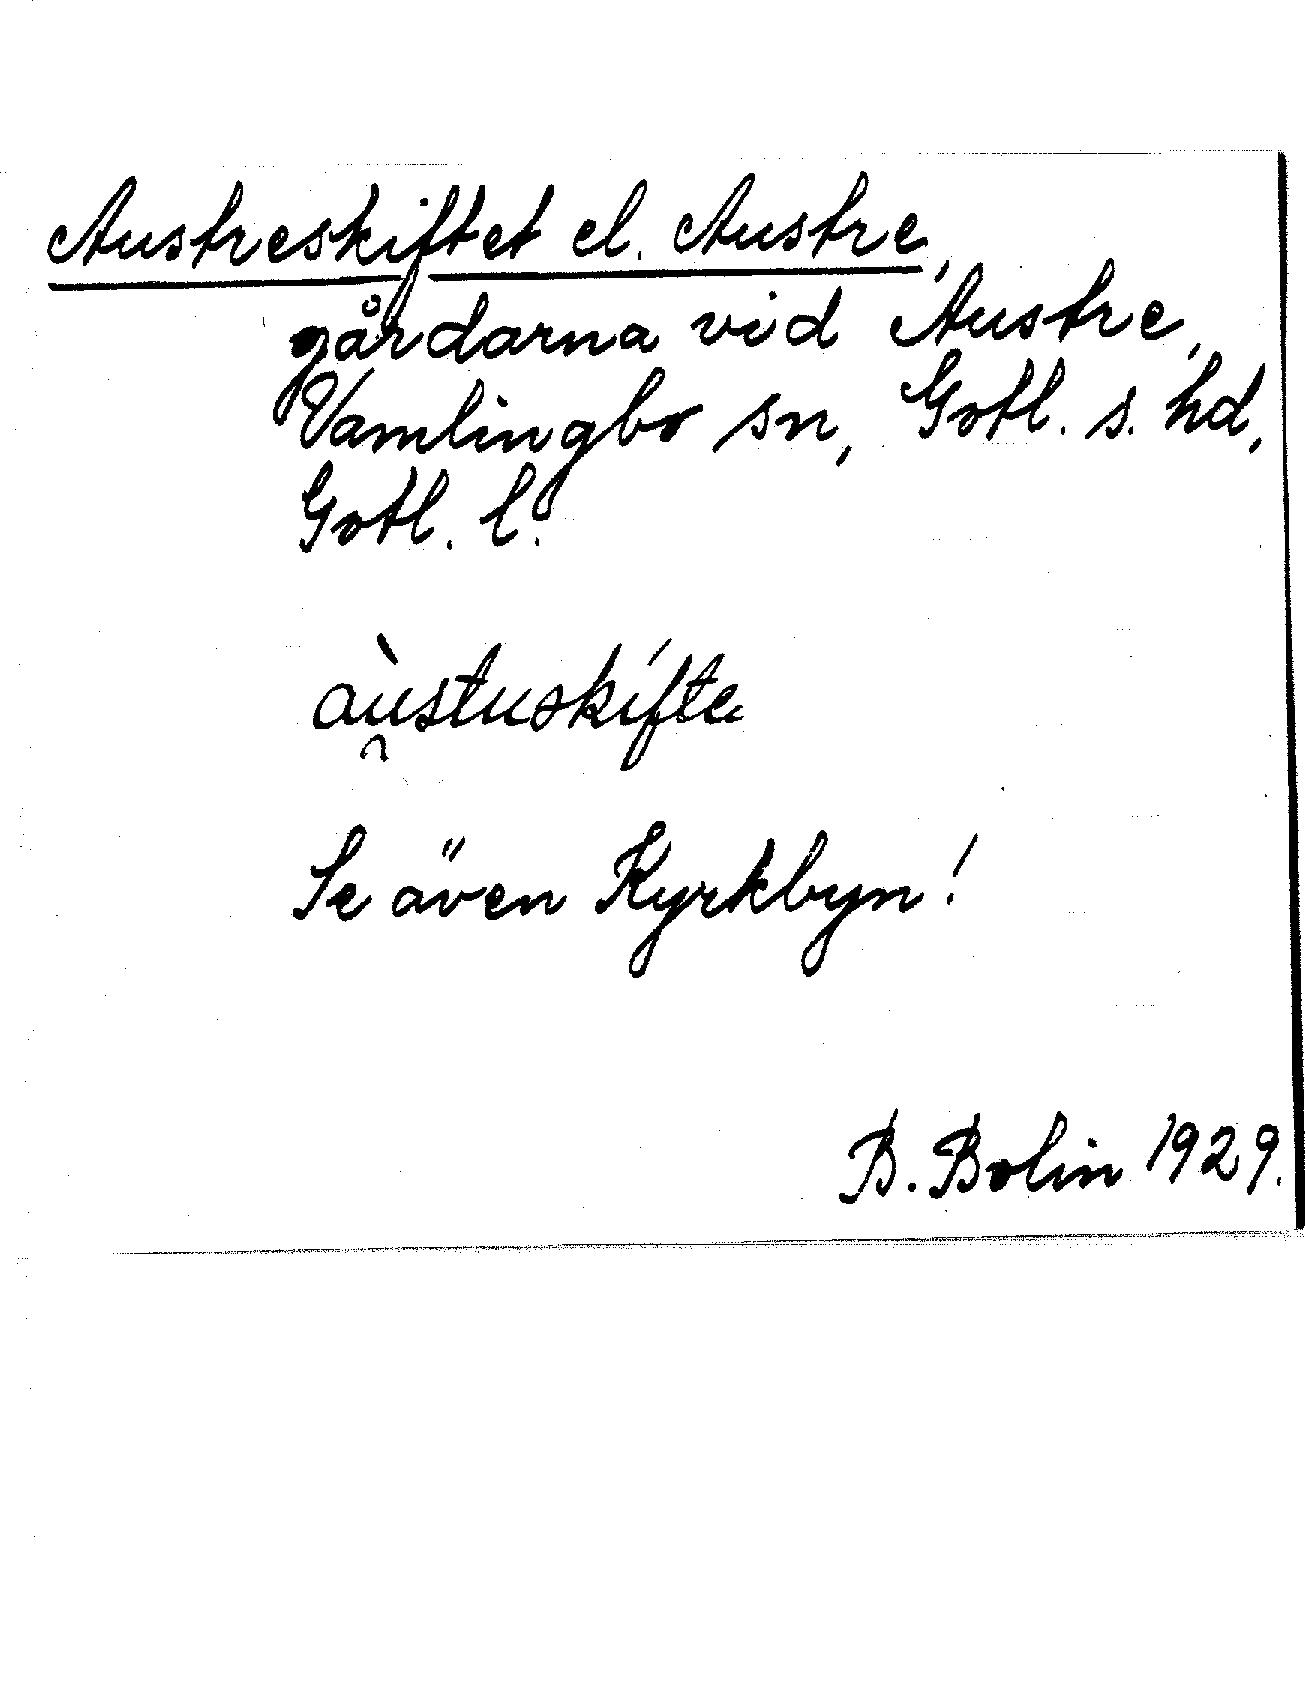 Austreskiftet el. Austre,
gårdarna vid Austre,
Vamlingbo sn, Gotl. s. hd,
Gotl. l.
àu̯stuskífte
Se även Kyrkbyn!
B. Bolin 1929.